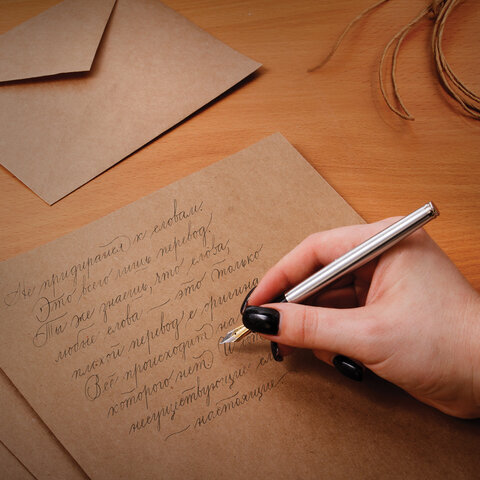 Не придирайся к словам.
Это всего лишь перевод.
Ты же знаешь, что слова,
любые слова — это только
плохой перевод с оригина
Всё происходит на
которого нет И
несуществующие
— настоящие